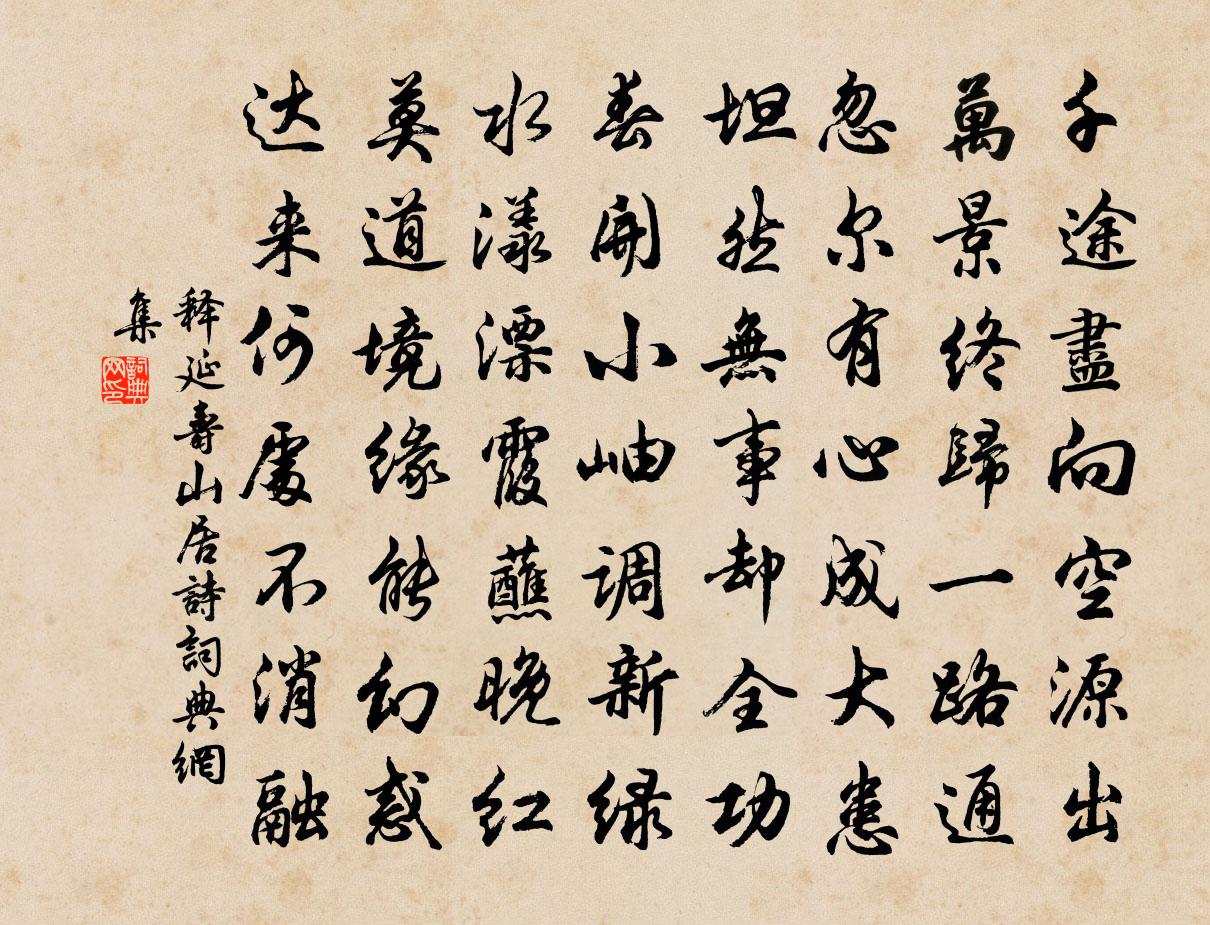 千途盡向空源出
萬景终歸一路通
忽尔有心成大患
坦然無事却全功
春開小岫调新绿
水漾漂霞蘸晚红
莫道境缘能幻惑
达来何處不消融
释延壽山居詩詞典網
集
詞典
网印